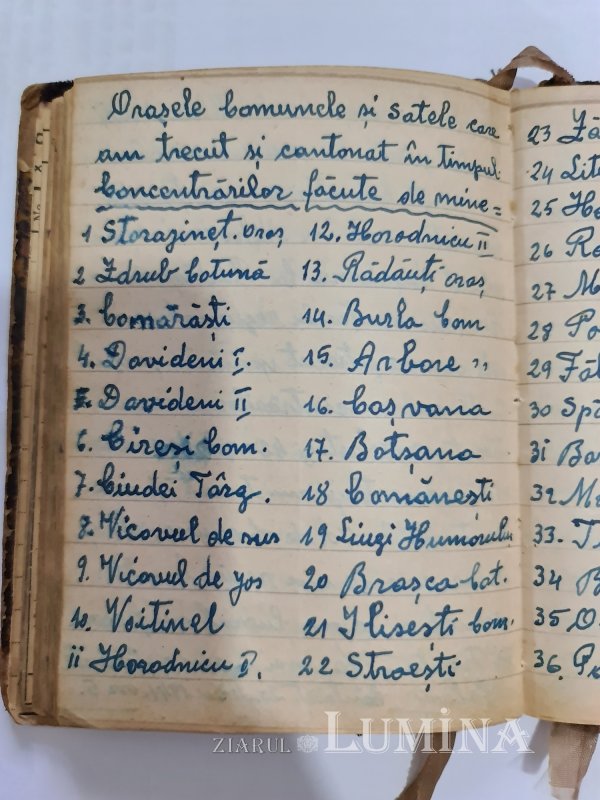 Orașele Comunele și Satele care
am trecut și cantonat în timpul
Concentrărilor făcute de mine =
1 Storajineț. oraș
2 Zdrub Cotună
3. Comărăști
4. Davideni I.
5. Davideni II
6. Cireși Com.
7. Ciudei Târg.
8. Vicovul de sus
9. Vicovul de jos
10. Voitinel
11 Horodnicu I.
12. Horodnicu II
13. Rădăuți oraș
14. Burla Com
15. Arbore "
16. Cașvana
17. Botșana
18 Comănești
19 Liuzi Humorului
20 Brașca-Cot.
21 Ilisești Com.
22 Stroești
23
24
25
26
27
28
29
30
31
32
33.
34
35
36
ZIARUL LUMINA